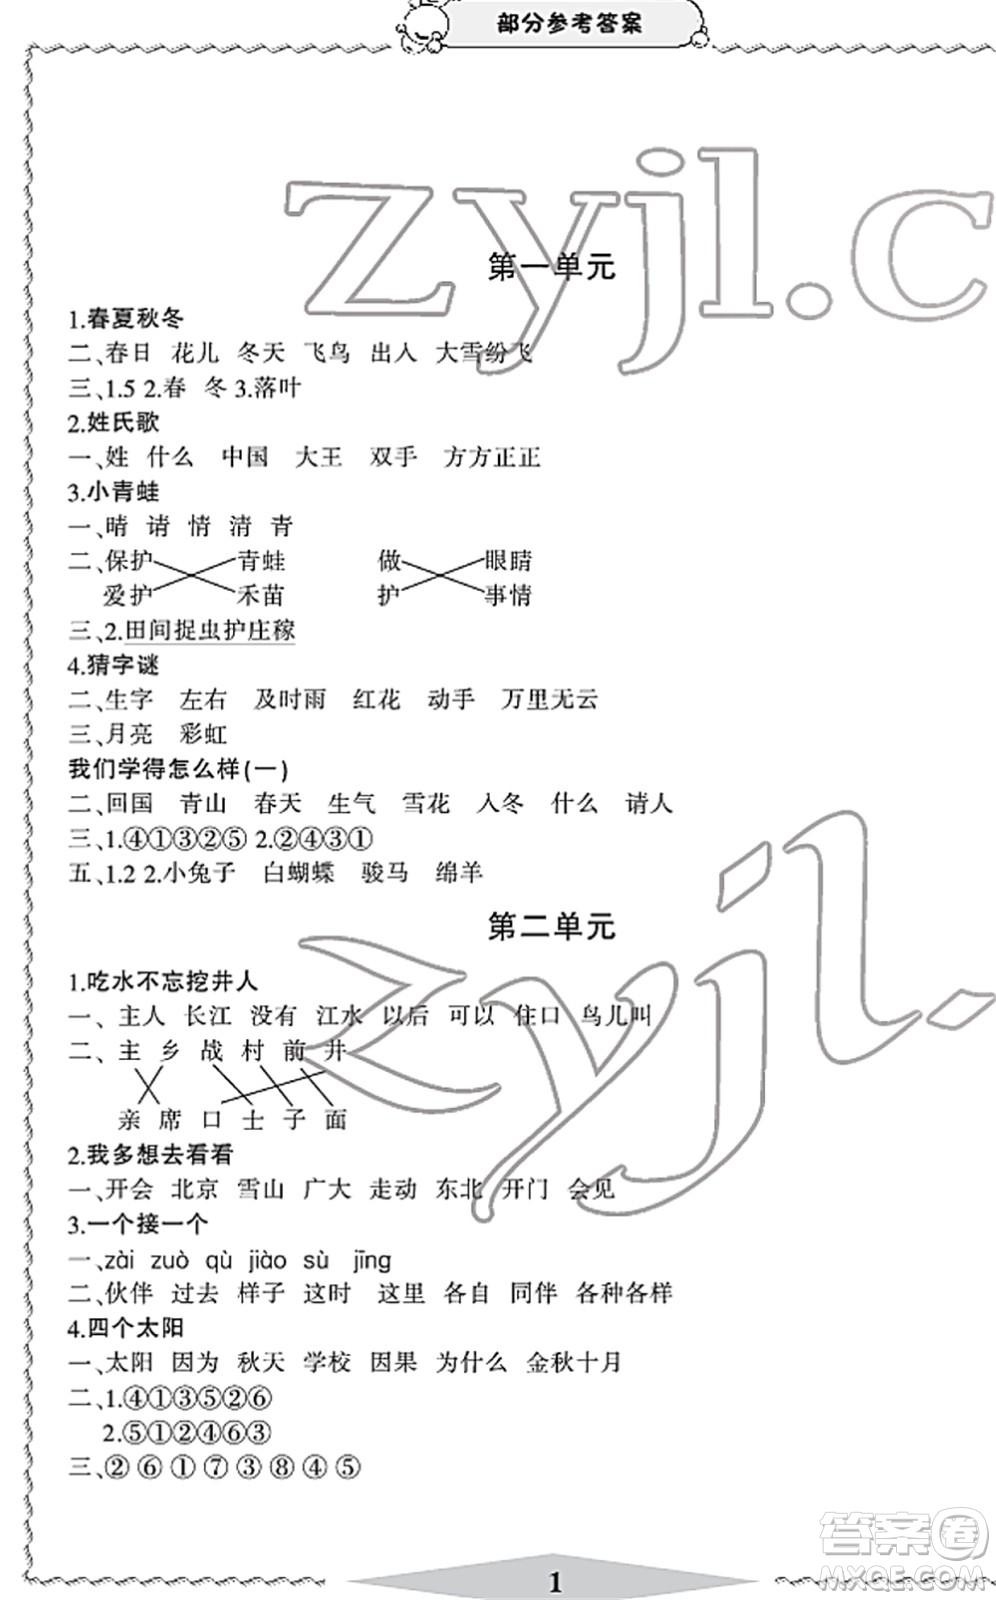 部分参考答案
zyjl.c
第一单元
1.春夏秋冬
二、春日 花儿 冬天 飞鸟 出入 大雪纷飞
三、1.5 2.春 冬 3.落叶
2.姓氏歌
一、姓 什么 中国 大王 双手 方方正正
3.小青蛙
一、晴 请 情 清 青
二、保护 青蛙 做 眼睛
爱护 禾苗 护 事情
三、2.田间捉虫护庄稼
4.猜字谜
二、生字 左右 及时雨 红花 动手 万里无云
三、月亮 彩虹
我们学得怎么样(一)
二、回国 青山 春天 生气 雪花 入冬 什么 请人
三、1.④①③②⑤ 2.②④③①
五、1.2 2.小兔子 白蝴蝶 骏马 绵羊
第二单元
zyjl.
1.吃水不忘挖井人
一、主人 长江 没有 江水 以后 可以 住口 鸟儿叫
二、主 乡 战 村 前 井
亲 席 口 士 子 面
2.我多想去看看
一、开会 北京 雪山 广大 走动 东北 开门 会见
3.一个接一个
一、zài zuò qù jiào sù jīng
二、伙伴 过去 样子 这时 这里 各自 同伴 各种各样
4.四个太阳
一、太阳 因为 秋天 学校 因果 为什么 金秋十月
二、1.④①③⑤②⑥
2.⑤①②④⑥③
三、② ⑥ ① ⑦ ③ ⑧ ④ ⑤
答案圈
MXQE.COM
1